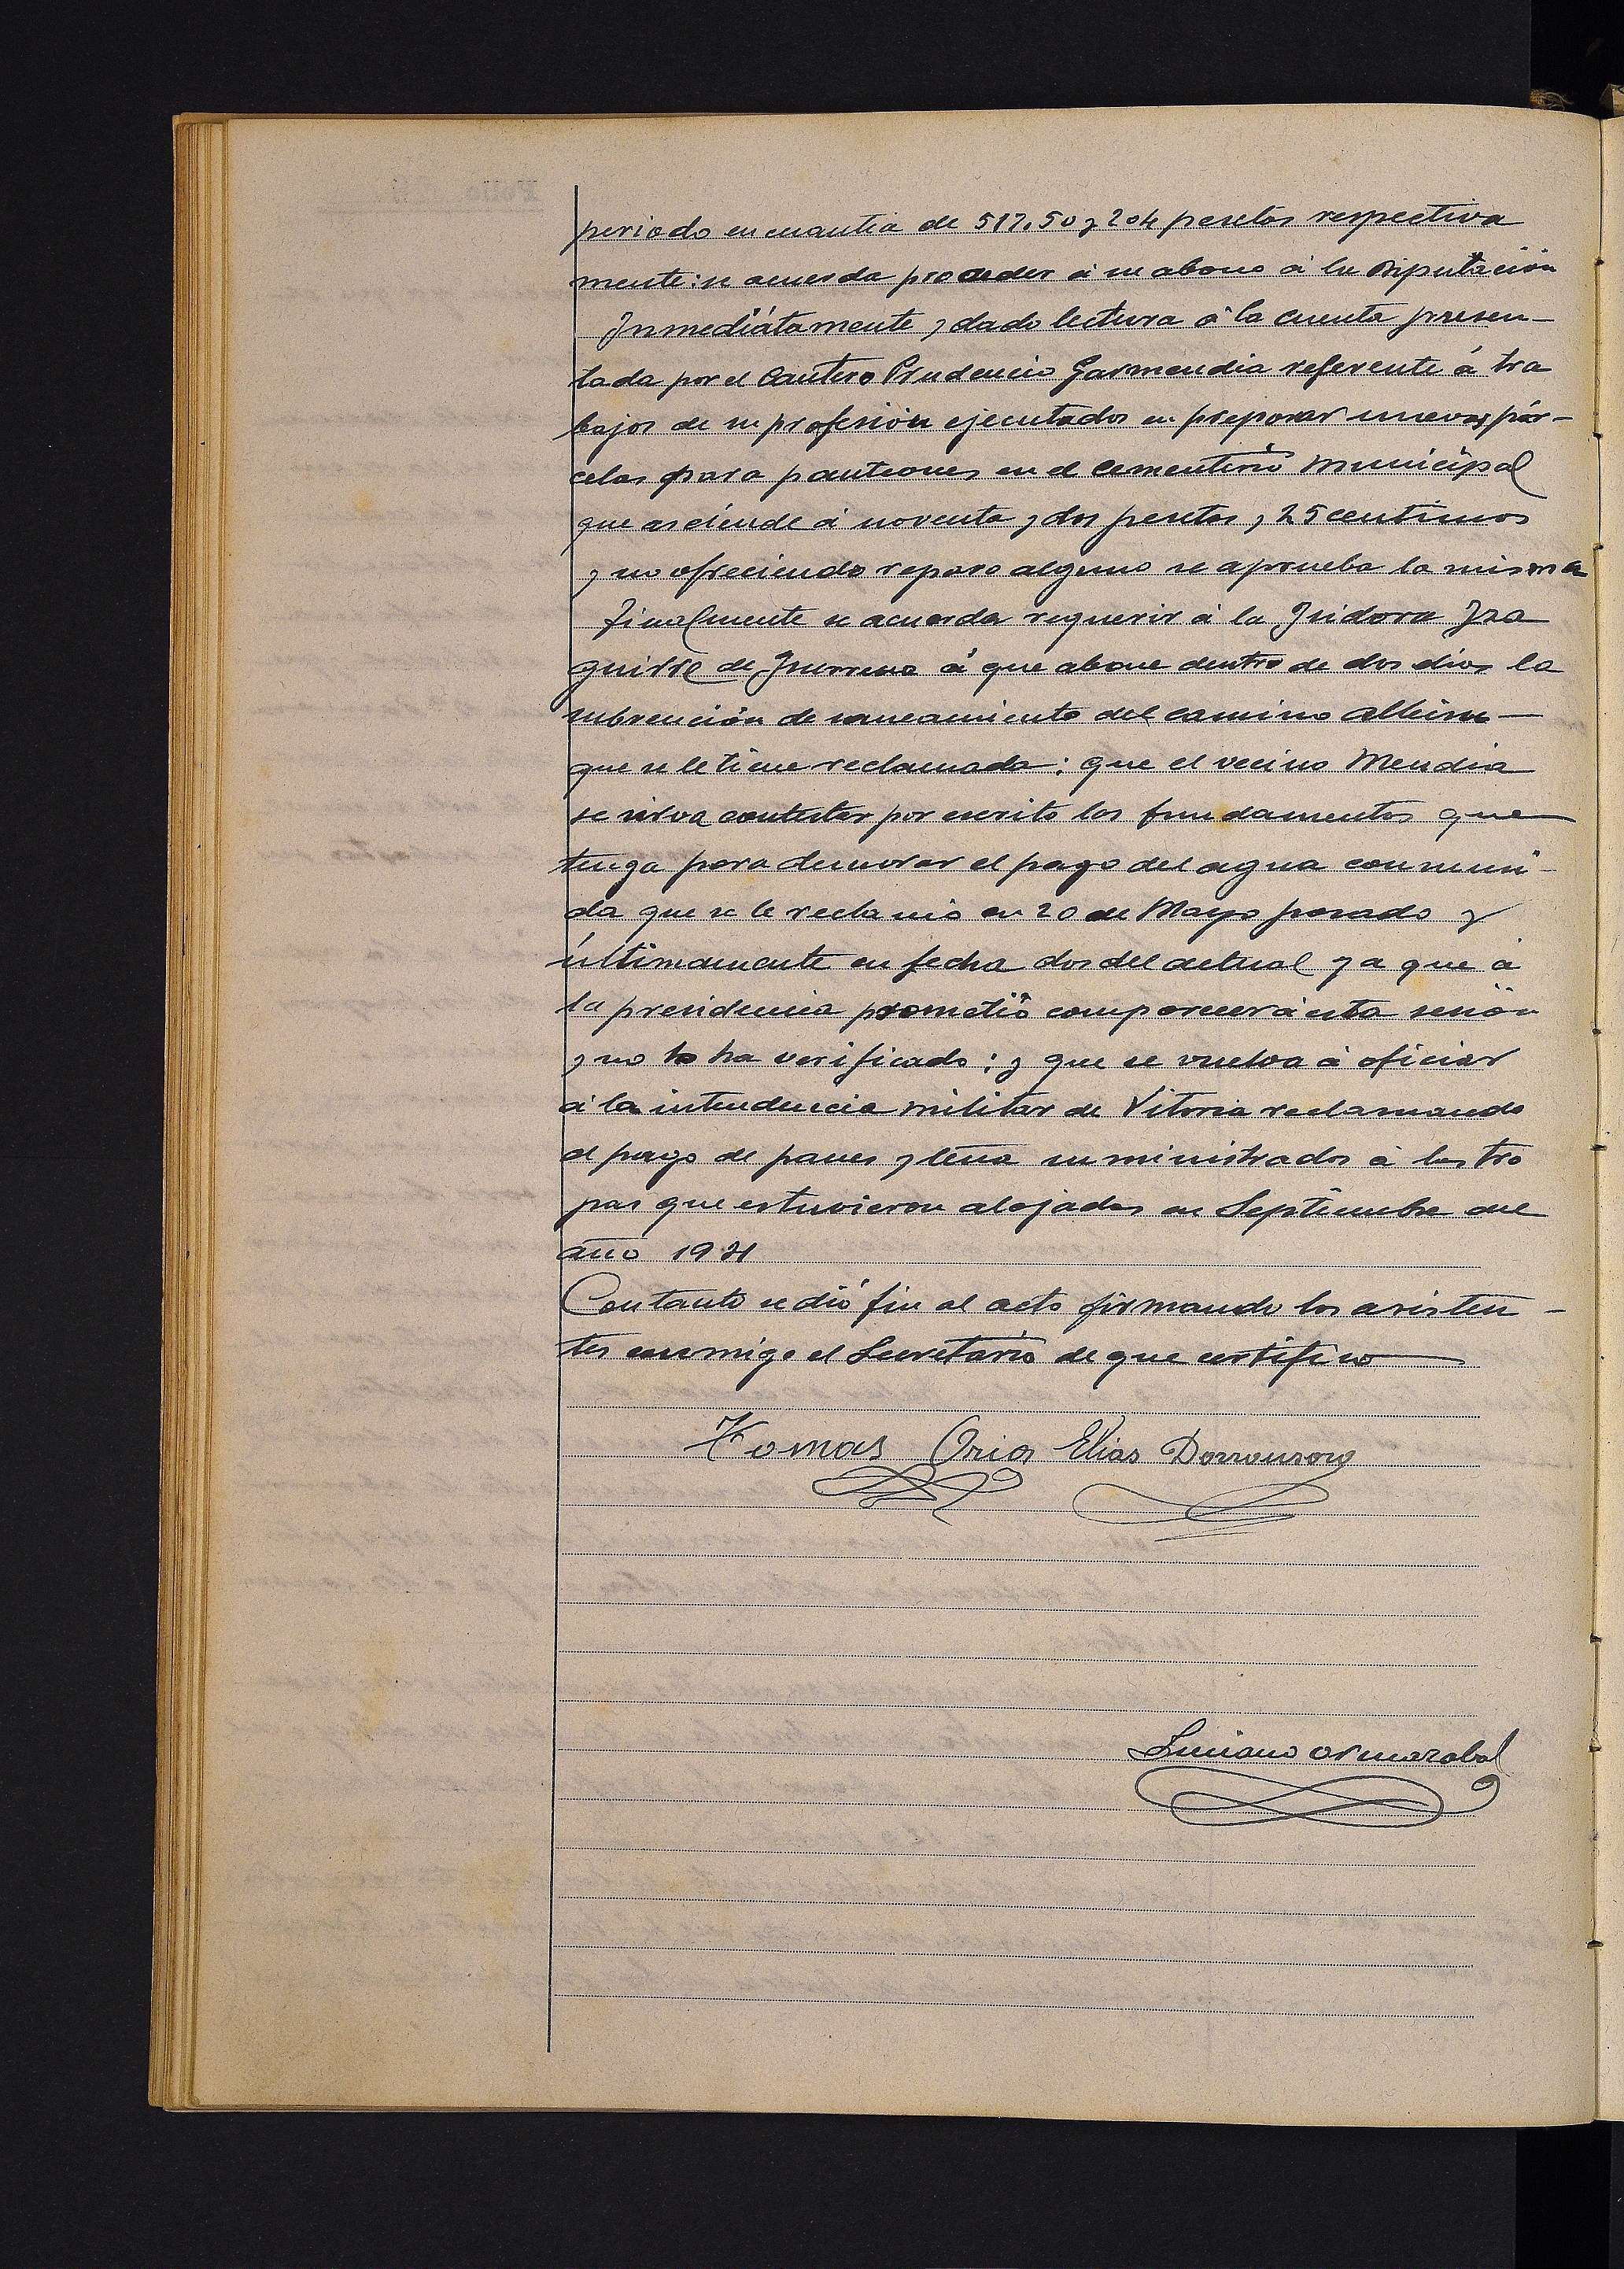 periodo en cuantia de 517,50 y 204 pesetas respectiva
mente: se acuerda proceder á su abono á la Diputación
Inmediátamente y dado lectura á la cuenta presen-
tada por el Cantero Prudencio Garmendia referente á tra
bajos de su profesión ejecutados en preparar nuevas par-
celas para panteones en el Cementerio Municipal
que asciende á noventa y dos pesetas y 25 centimos
y no ofreciendo reparo alguno se aprueba la misma
Finalmente se acuerda requerir á la Isidora Iza
guirre de á que abone dentro de dos dias la
subvención de saneamiento del camino
que se le tiene reclamada: que el vecino Mendia
se sirva contestar por escrito los fundamentos que
tenga para demorar el pago del agua consumi-
da que se le reclamó en 20 de Mayo pasado y
últimamente en fecha dos del actual ya que á
la presidencia prometió comparecer á esta sesión
y no lo ha verificado: y que se vuelva á oficiar
á la intendencia militar de Vitoria reclamando
el pago de panes y leña suministrados á las tro
pas que estuvieron alojadas en Septiembre del
año 1921
Con tanto se dió fin al acto firmando los asisten-
tes conmigo el Secretario de que certifico
Tomas Oria Elias Dorronsoro
Luciano Ormazabal